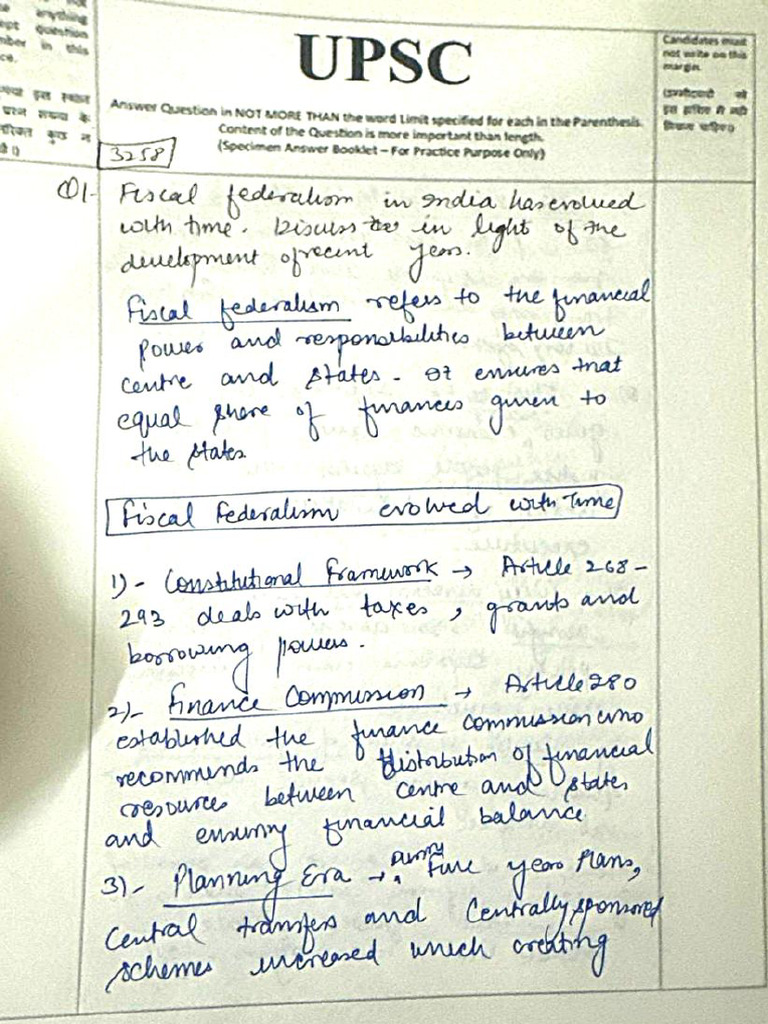 anything
ept question
mber in this
ce.
UPSC
Candidates must
not write on this
margin.
Answer Question in NOT MORE THAN the word Limit specified for each in the Parenthesis.
Content of the Question is more important than length.
(Specimen Answer Booklet – For Practice Purpose Only)
3258
Q1- Fiscal federalism in India has evolved
with time. Discuss in light of the
development of recent years.
Fiscal federalism refers to the financial
power and responsibilities between
centre and states - It ensures that
equal share of finances given to
the states
Fiscal Federalism evolved with Time
1)- Constitutional Framework → Article 268-
293 deals with taxes, grants and
borrowing powers.
2)- Finance Commission → Article 280
established the finance commission who
recommends the distribution of financial
resources between centre and states
and ensuring financial balance
3)- Planning Era → During Five year Plans,
Central transfers and Centrally sponsored
schemes increased which creating